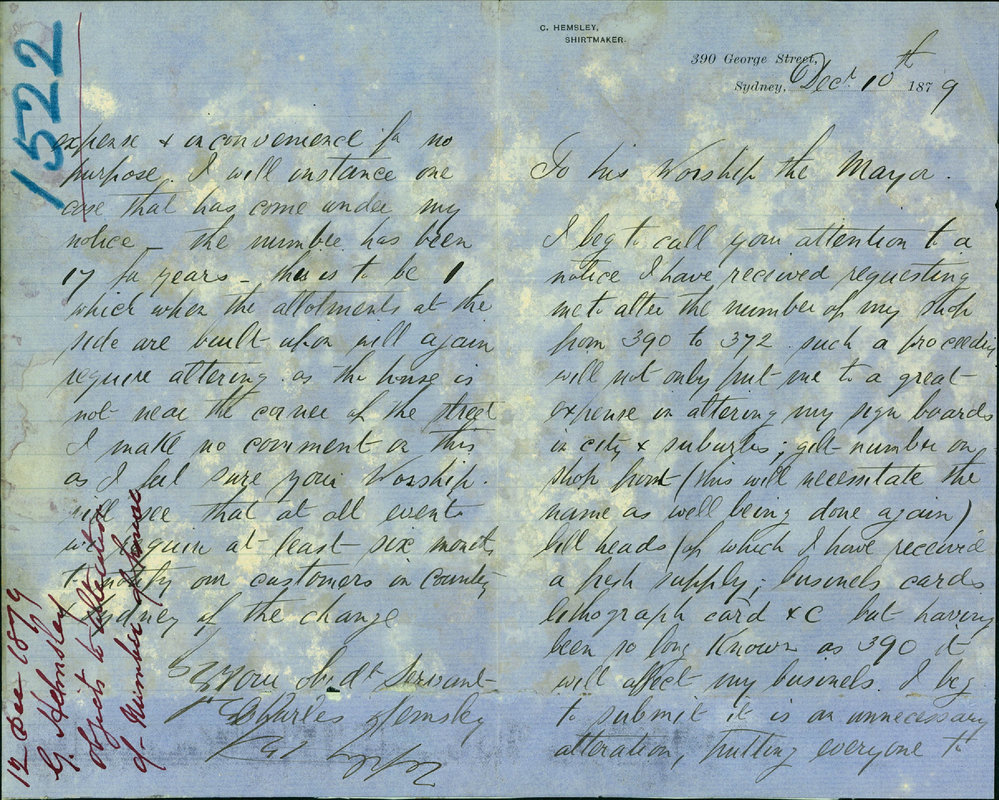 C. HEMSLEY,
SHIRTMAKER.
390 George Street,
Sydney, Decr 10th 1879
To his Worship the Mayor.
I beg to call your attention to a
notice I have received requesting
me to alter the number of my shop
from 390 to 372 such a proceeding
will not only put me to a great
expense in altering my sign boards
in city & suburbs; gilt number on
shop front (this will necessitate the
name as well being done again)
bill heads (of which I have received
a fresh supply; business cards
lithograph card &c but having
been so long known as 390 it
will affect my business. I beg
to submit it is an unnecessary
alteration, putting everyone to
expense & inconvenience for no
purpose. I will instance one
case that has come under my
notice - the number has been
17 for years - this is to be 1
which when the allotments at the
side are built upon will again
require altering. as the house is
not near the corner of the street
I make no comment on this
as I feel sure your Worship.
will see that at all events
we require at least six months
to notify our customers in country
Sydney of the change
your obdt Servant
Charles Hemsley
1522
12 Dec 1879
G. Hemsley
objects to alteration
of Number of house